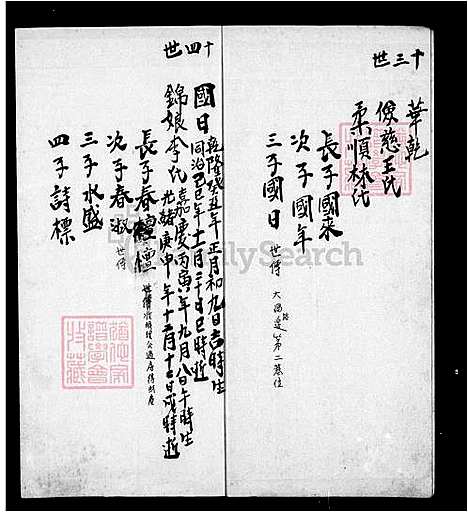 十三世
華乾
俊慈王氏
柔順林氏
長子國來
次子國年
三子國日 世傳 大湖邊第二基住
十四世
國日 乾隆癸丑年正月初九日吉時生
同治己巳年十一月三十日巳時逝
錦娘李氏 嘉慶丙寅年九月八日午時生
光緒庚申年十二月十七日戌時逝
長子春檀 檀
次子春淑 世傳
三子水盛
四子詩標
FamilySearch